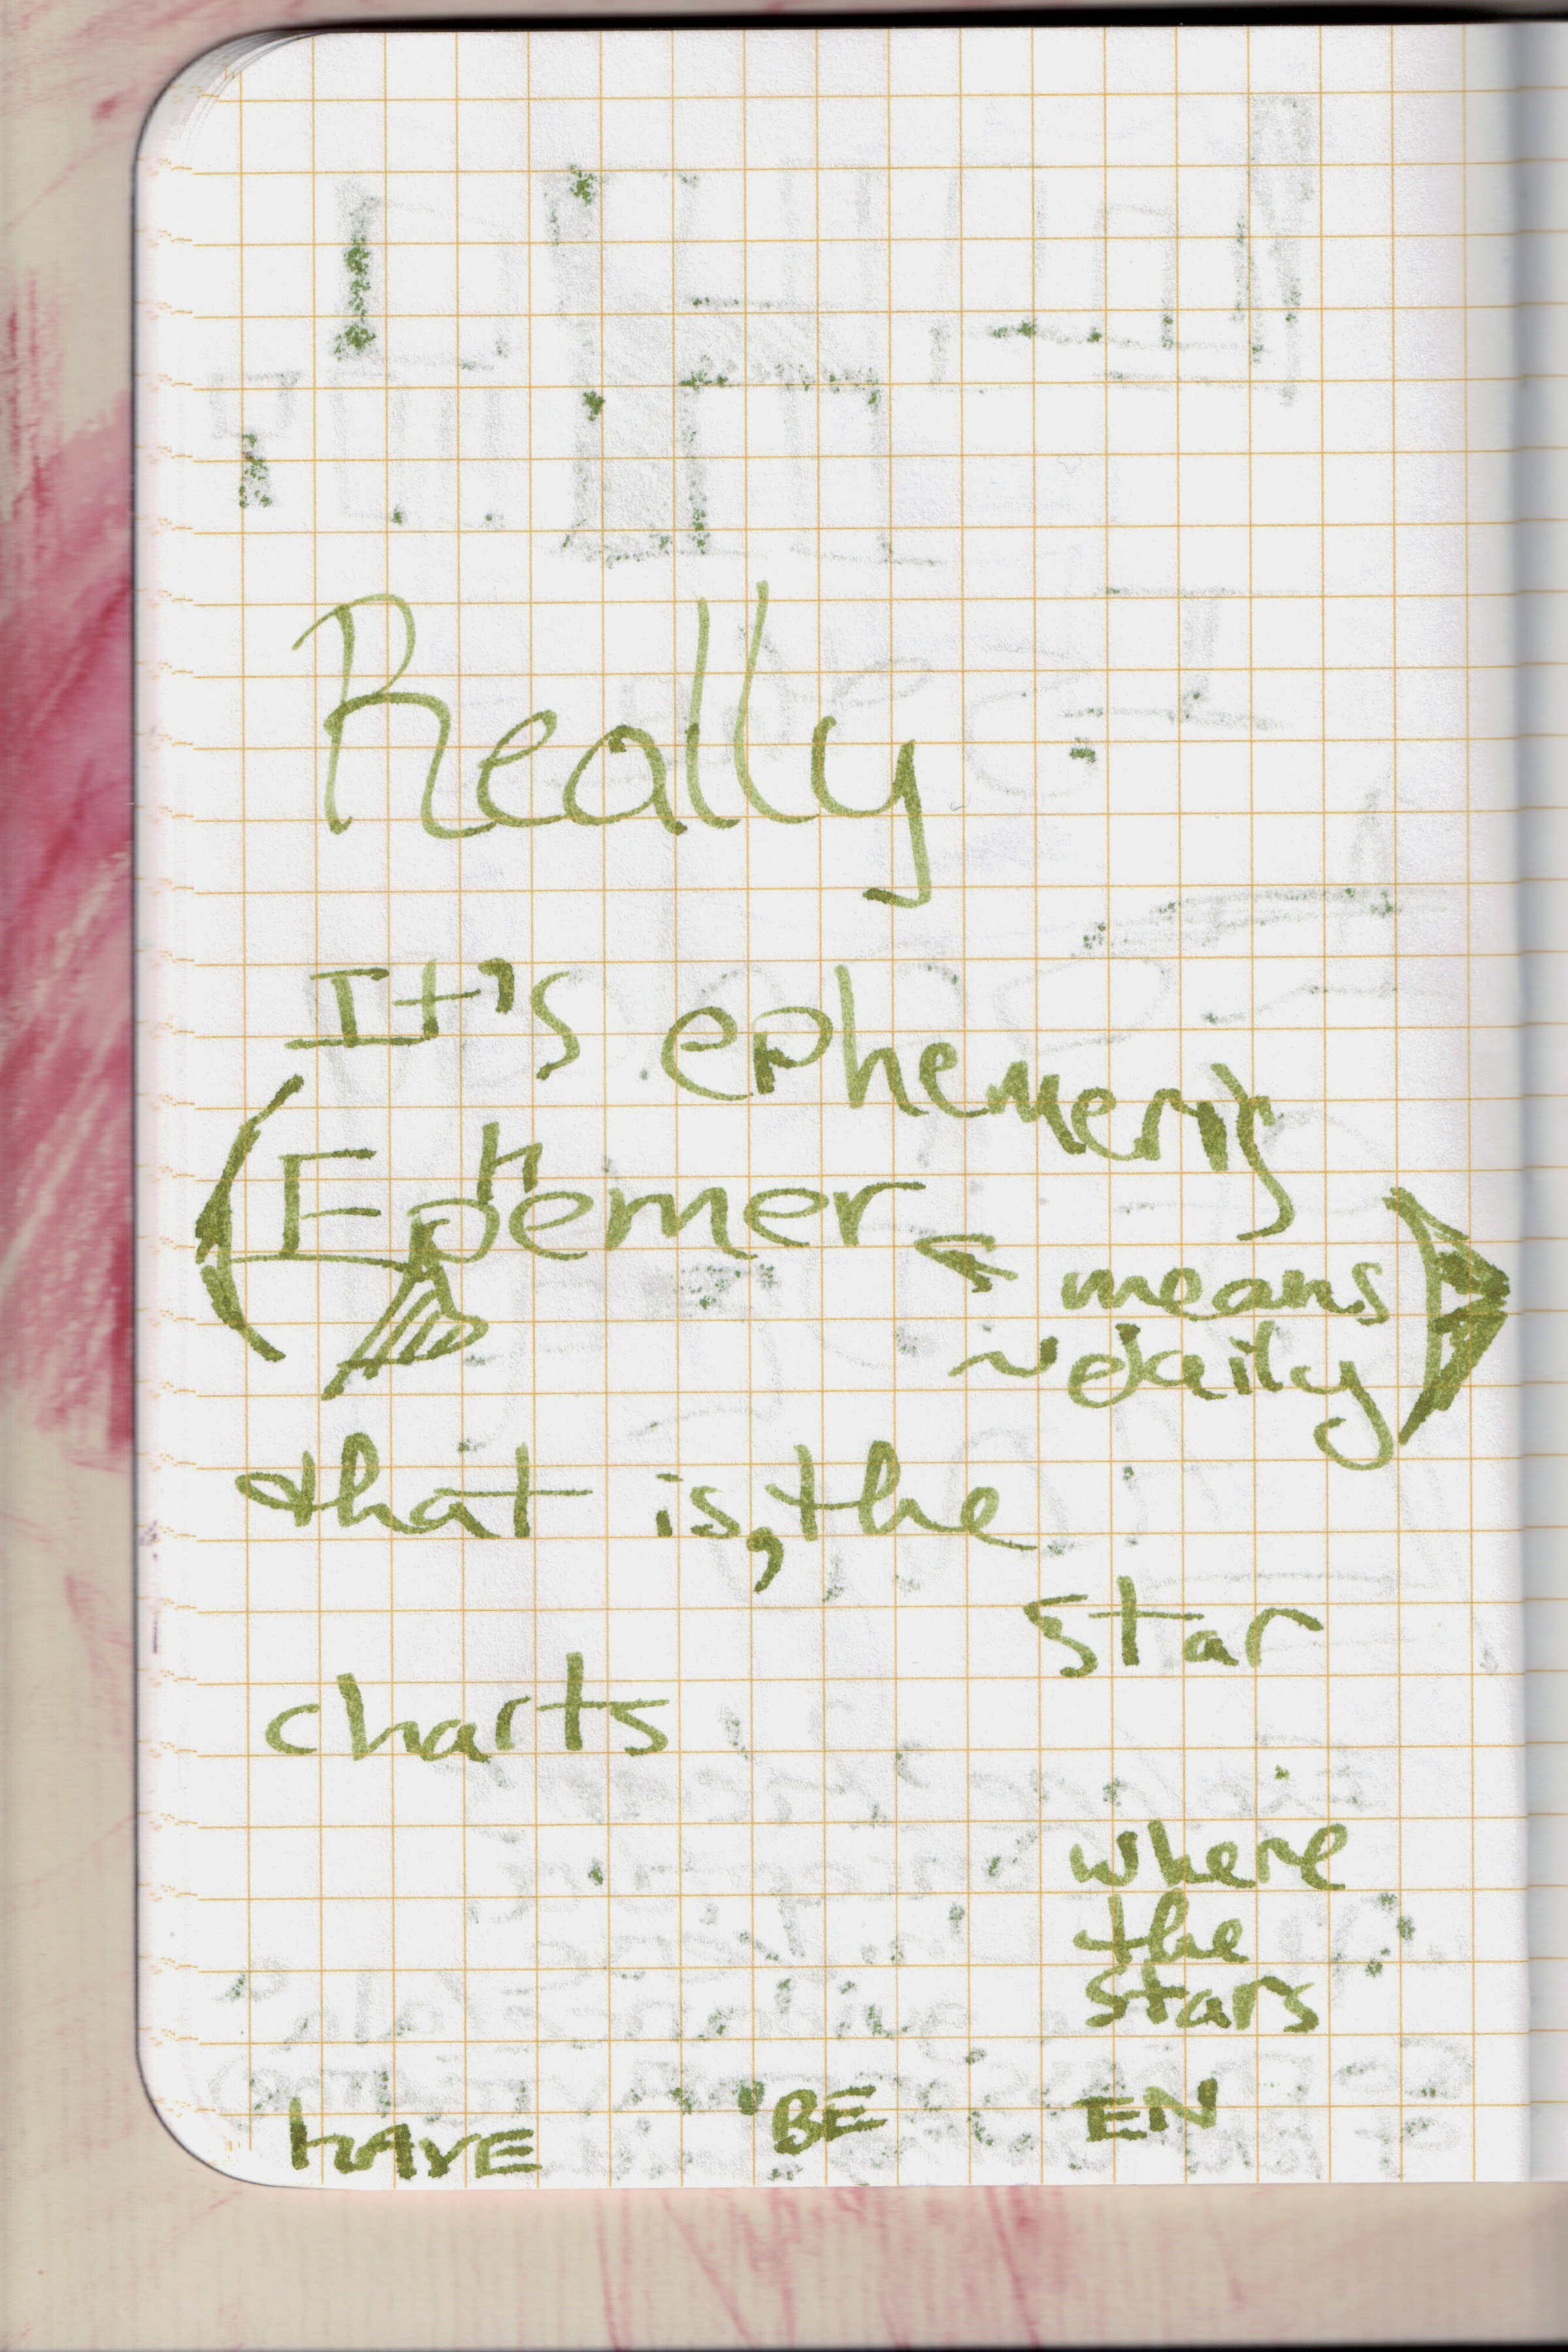 Really
It's ephemeris
(Ephemer ← means
~daily)
that is, the
star
charts
where
the
stars
HAVE BE EN